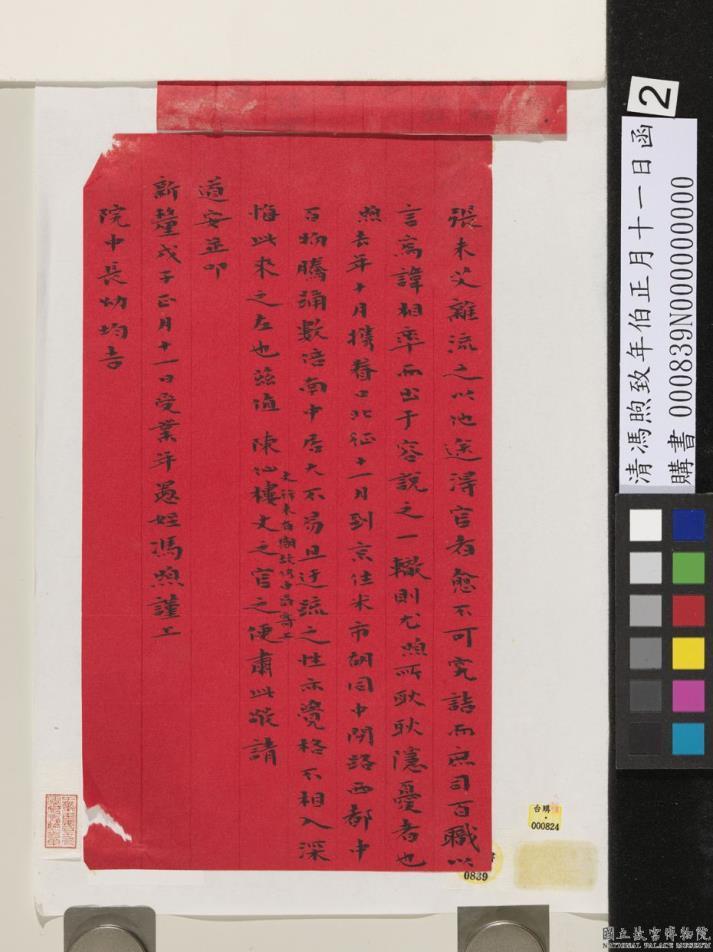 張未艾離流之以他途得官者愈不可究詰而庶司百職以
言為諱相率而出于容說之一轍則尤煦所耿耿隱憂者也
煦去年十月攜眷口北征十一月到京住米市胡同中間路西都中
百物騰踊數倍南中居大不易且迂疏之性亦覺格不相入深
悔此來之左也茲值 陳仙樓丈之官之便肅此敬請
道安並叩
新釐戊子正月十一日受業年愚姪馮煦謹上
院中長幼均吉
2
清馮煦致年伯正月十一日函
購書 000839N000000000
台購
000824
0839
國立故宮博物院
NATIONAL PALACE MUSEUM